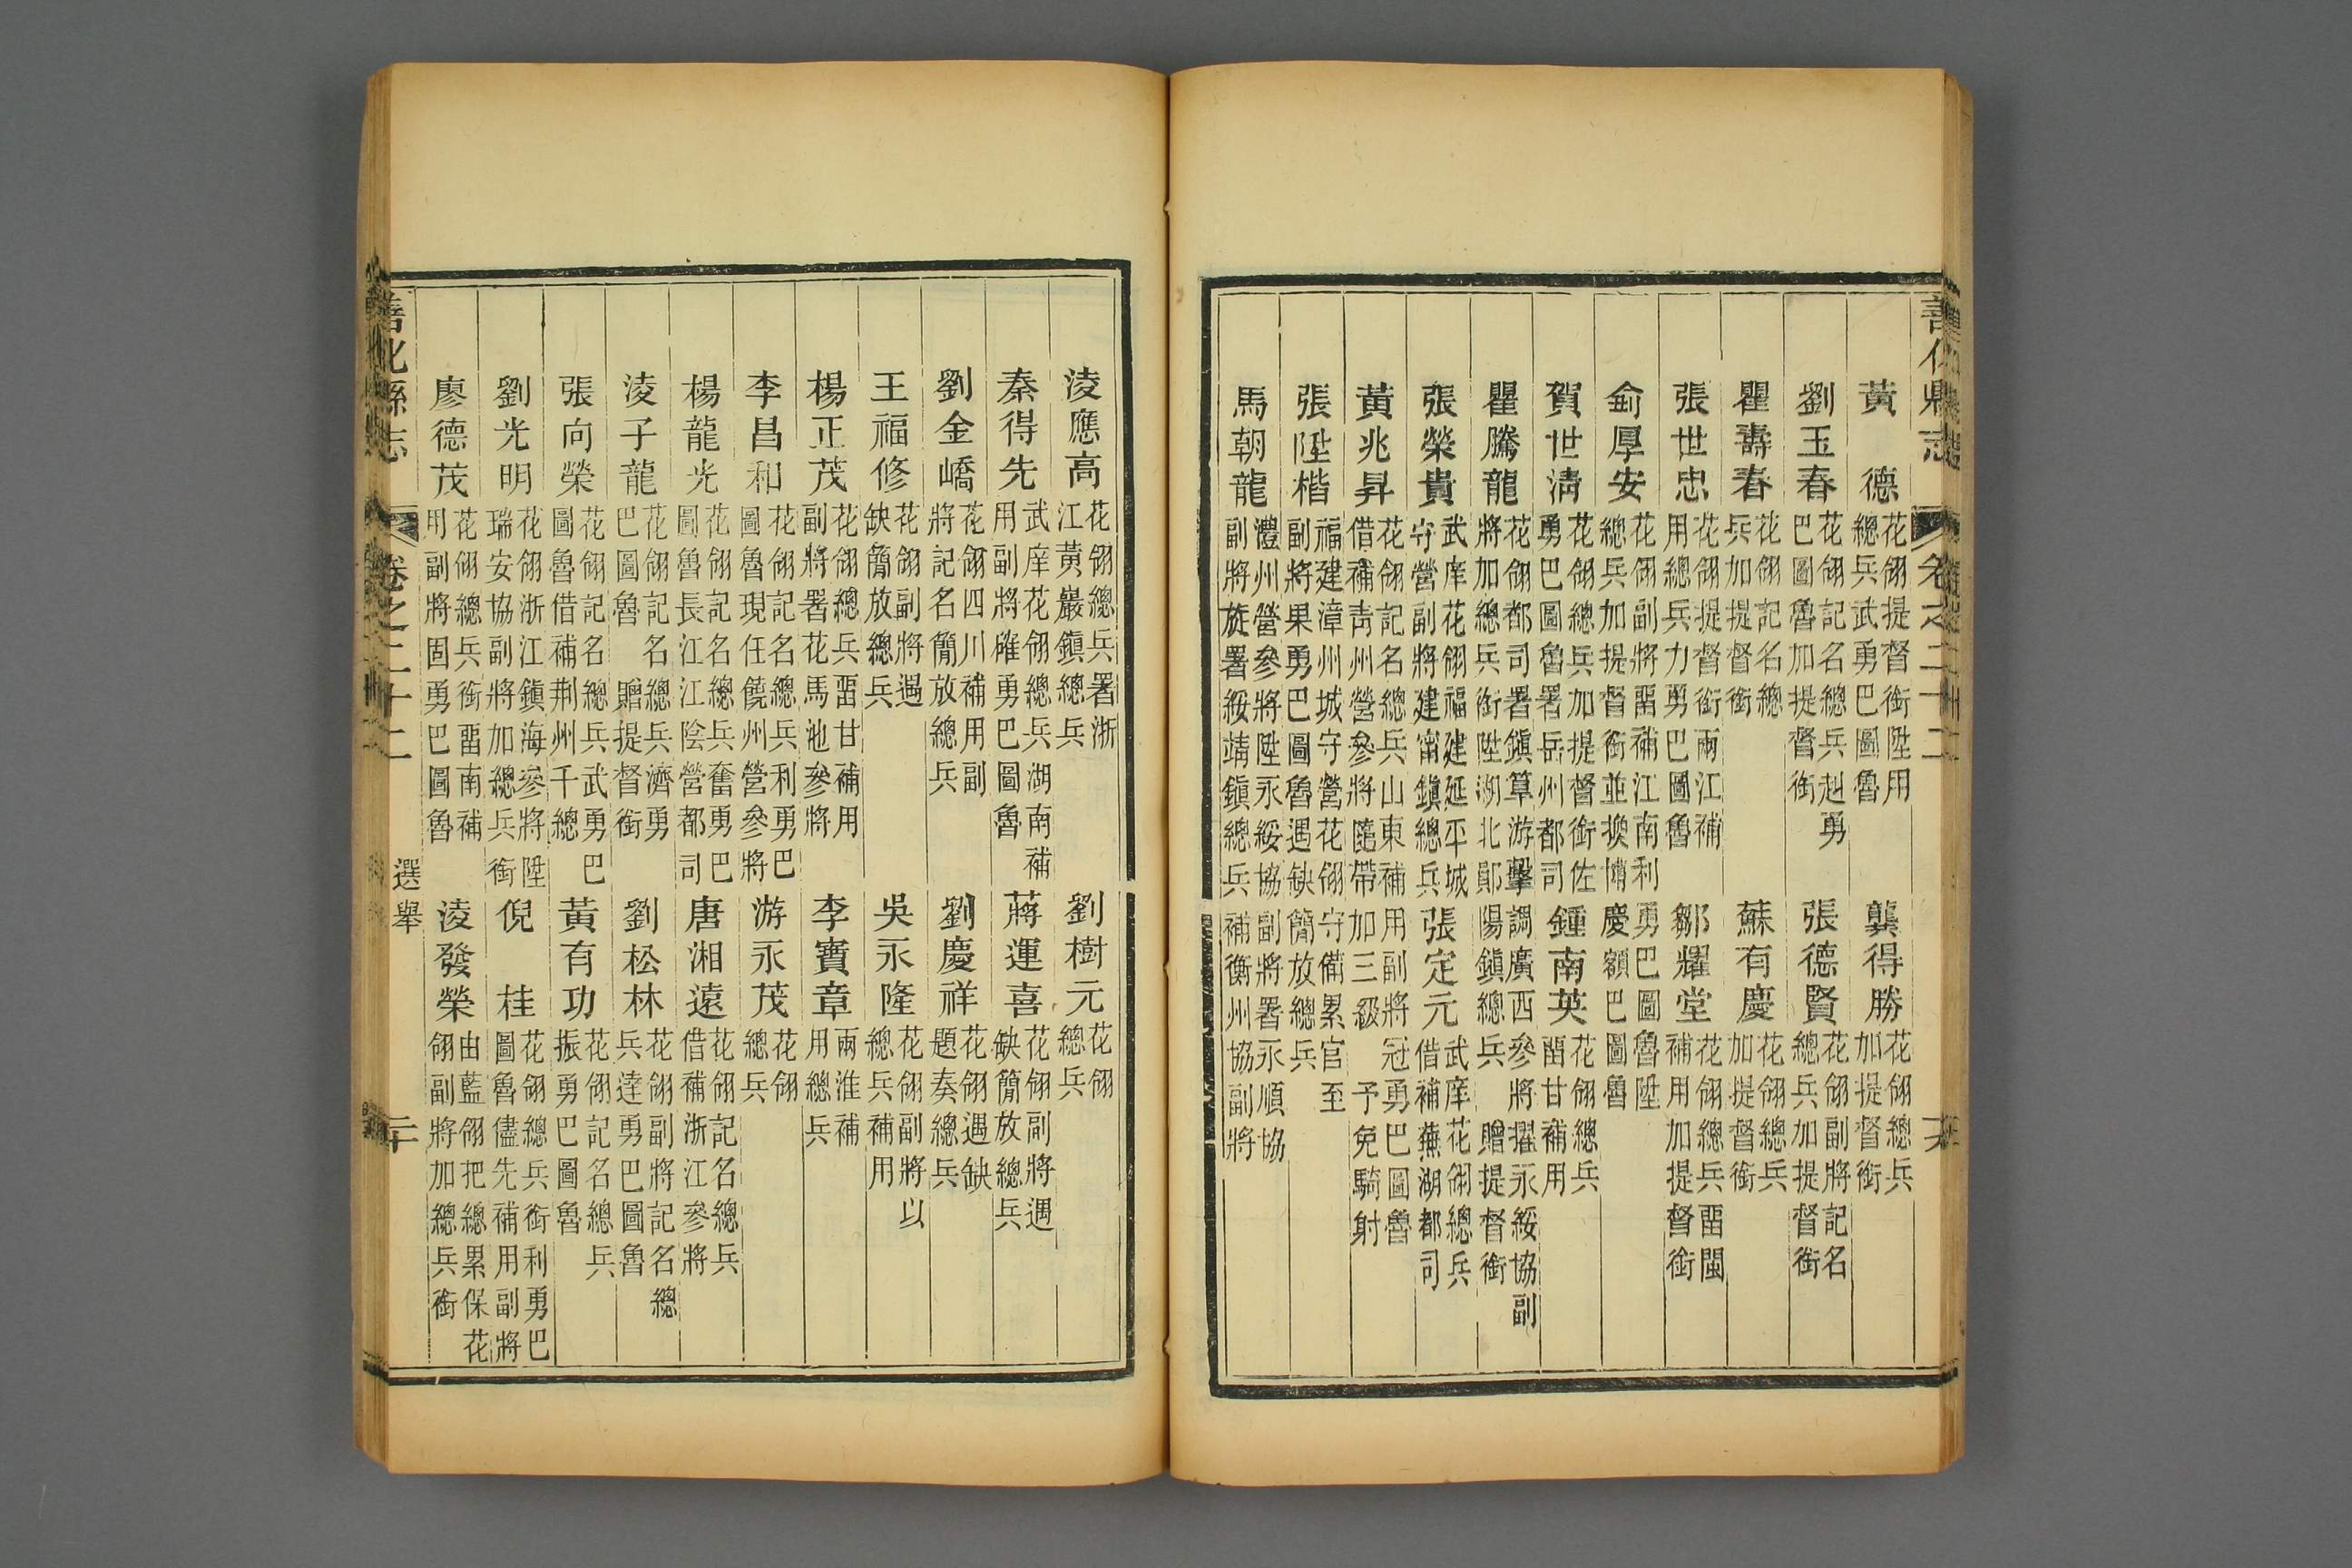 善化縣志 卷之二十二
黃 德 花翎提督銜陞用總兵武勇巴圖魯 龔得勝 花翎總兵加提督銜
劉玉春 花翎記名總兵赳勇巴圖魯加提督銜 張德賢 花翎副將記名總兵加提督銜
瞿壽春 花翎記名總兵加提督銜 蘇有慶 花翎總兵加提督銜
張世忠 花翎提督銜兩江補用總兵力勇巴圖魯 鄒耀堂 花翎總兵畱閩補用加提督銜
俞厚安 花翎副將畱補江南利勇巴圖魯陞總兵加提督銜並換博慶額巴圖魯
賀世清 花翎總兵加提督銜佐勇巴圖魯署岳州都司 鍾南英 花翎總兵畱甘補用
瞿騰龍 花翎都司署鎮筸游擊調廣西參將擢永綏協副將加總兵銜陞湖北鄖陽鎮總兵 贈提督銜
張榮貴 武庠花翎福建延平城守營副將建甯鎮總兵 張定元 武庠花翎總兵借補蕪湖都司
黃兆昇 花翎記名總兵山東補用副將冠勇巴圖魯借補青州營參將隨帶加三級 予免騎射
張陞楷 福建漳州城守營花翎守備累官至副將果勇巴圖魯遇缺簡放總兵
馬朝龍 澧州營參將陞永綏協副將署永順協副將旋署綏靖鎮總兵補衡州協副將
淩應高 花翎總兵署浙江黃巖鎮總兵 劉樹元 花翎總兵
秦得先 武庠花翎總兵湖南補用副將確勇巴圖魯 蔣運喜 花翎副將遇缺簡放總兵
劉金嶠 花翎四川補用副將記名簡放總兵 劉慶祥 花翎遇缺題奏總兵
王福修 花翎副將遇缺簡放總兵 吳永隆 花翎副將以總兵補用
楊正茂 花翎總兵畱甘補用副將署花馬池參將 李寶章 兩淮補用總兵
李昌和 花翎記名總兵利勇巴圖魯現任饒州營參將 游永茂 花翎總兵
楊龍光 花翎記名總兵奮勇巴圖魯長江江陰營都司 唐湘遠 花翎記名總兵借補浙江參將
淩子龍 花翎記名總兵濟勇巴圖魯 贈提督銜 劉松林 花翎副將記名總兵達勇巴圖魯
張向榮 花翎記名總兵武勇巴圖魯借補荊州千總 黃有功 花翎記名總兵振勇巴圖魯
劉光明 花翎浙江鎮海參將陞瑞安協副將加總兵銜 倪 桂 花翎總兵銜利勇巴圖魯儘先補用副將
廖德茂 花翎總兵銜畱南補用副將固勇巴圖魯 淩發榮 由藍翎把總累保花翎副將加總兵銜
善化縣志 卷之二十二 選舉 二十